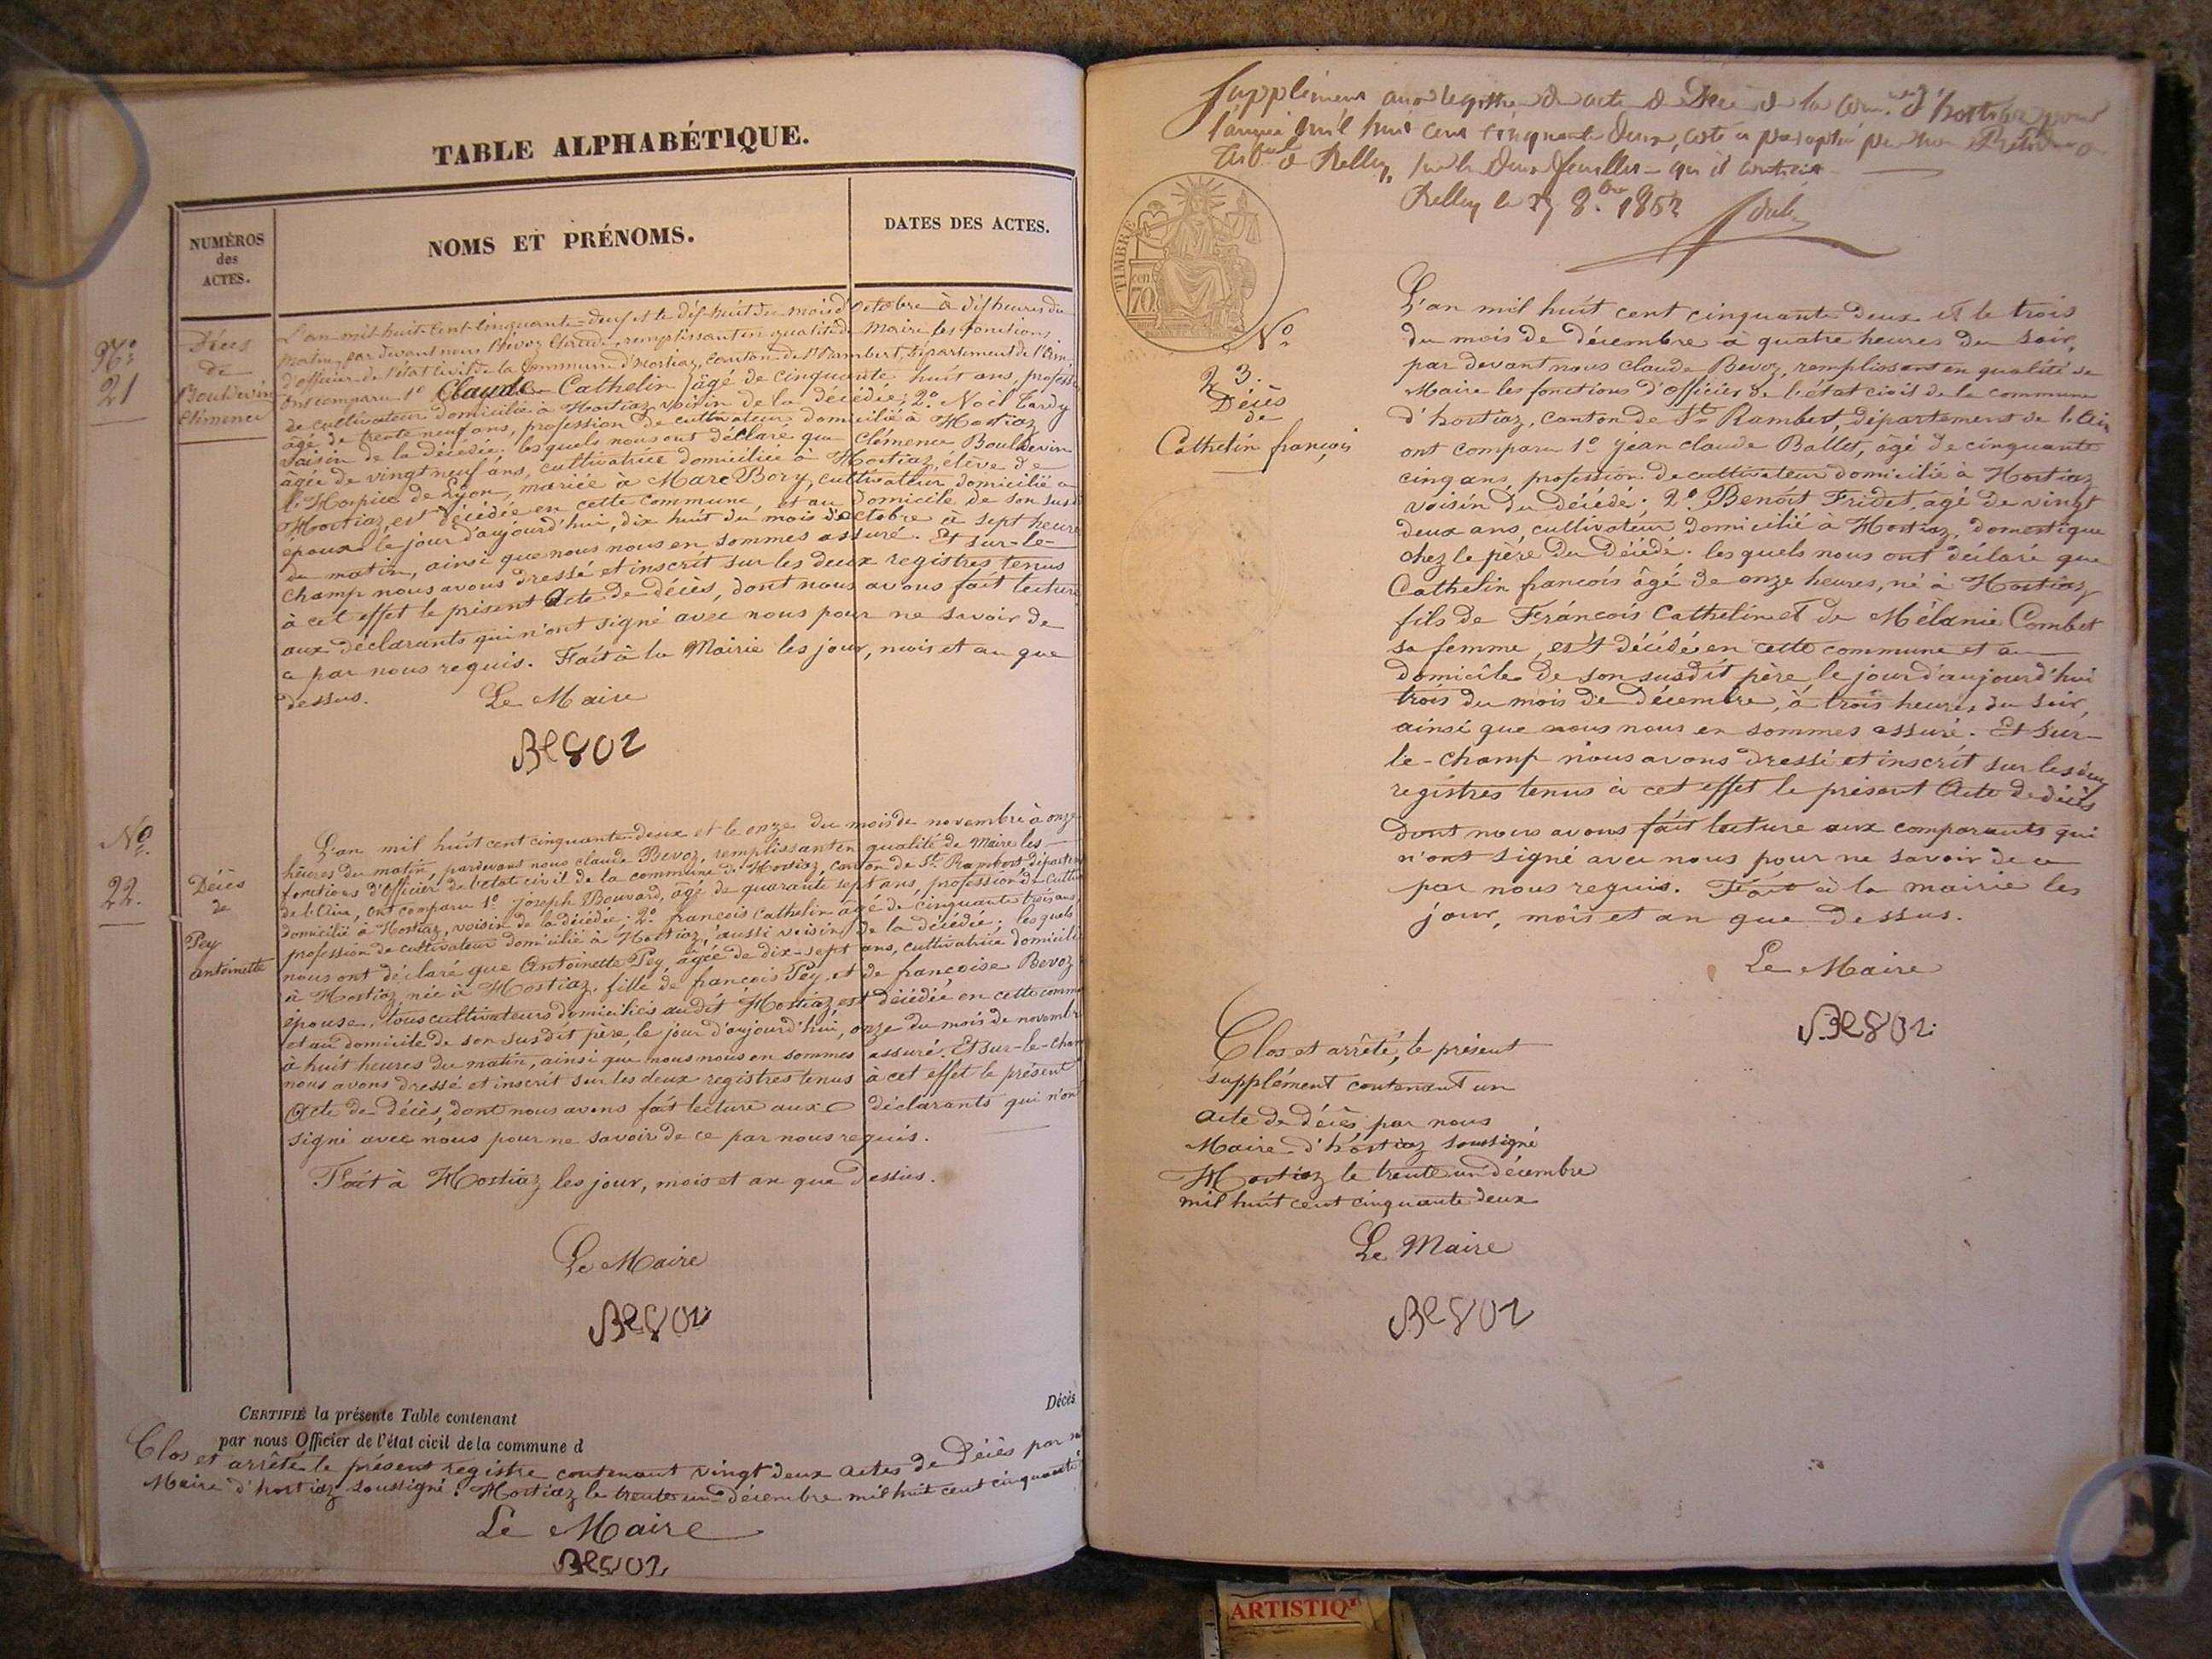 TABLE ALPHABÉTIQUE.
NUMÉROS
des
ACTES.
NOMS ET PRÉNOMS.
DATES DES ACTES.
No
21
Décès
de
Bouldevin
Clémence
L'an mil huit cent cinquante-deux et le dix-huit du mois d'octobre à dix heures du
matin, par devant nous Bévoz Claude, remplissant en qualité de Maire les fonctions
d'officier de l'état civil de la commune d'Hostiaz, canton de St Rambert, département de l'Ain
ont comparu 1o Claude Cathelin âgé de cinquante huit ans, profession
de cultivateur domicilié à Hostiaz voisin de la décédée; 2o Noël Tardy
âgé de trente neuf ans, profession de cultivateur domicilié à Hostiaz
voisin de la décédée; lesquels nous ont déclaré que Clémence Bouldevin
agée de vingt neuf ans, cultivatrice domiciliée à Hostiaz, élève de
l'Hospice de Lyon, mariée à Marc Bory, cultivateur domicilié à
Hostiaz, est décédée en cette commune, et au domicile de son susdit
époux le jour d'aujourd'hui, dix huit du mois d'octobre à sept heures
du matin, ainsi que nous nous en sommes assuré. Et sur-le-
champ nous avons dressé et inscrit sur les deux registres tenus
à cet effet le présent Acte de décès, dont nous avons fait lecture
aux déclarants qui n'ont signé avec nous pour ne savoir de
ce par nous requis. Fait à la Mairie les jour, mois et an que
dessus.
Le Maire
Bevoz
No
22.
Décès
de
Pey
antoinette
L'an mil huit cent cinquante deux et le onze du mois de novembre à onze
heures du matin, pardevant nous claude Bevoz, remplissant en qualité de Maire les
fonctions d'Officier de l'état civil de la commune d'Hostiaz, canton de St Rambert, départem
de l'Ain, ont comparu 1o Joseph Bouvard, âgé de quarante sept ans, profession de cultiv
domicilié à Hostiaz, voisin de la décédée; 2o francois Cathelin âgé de cinquante trois ans
profession de cultivateur domicilié à Hostiaz, aussi voisin de la décédée; lesquels
nous ont déclaré que Antoinette Pey, âgée de dix-sept ans, cultivatrice domicilié
à Hostiaz, née à Hostiaz, fille de françois Pey, et de francoise Bevoz
épouse, tous cultivateurs domiciliés audit Hostiaz, est décédée en cette comm
et au domicile de son susdit père, le jour d'aujourd'hui, onze du mois de novembr
à huit heures du matin, ainsi que nous nous en sommes assuré. Et sur-le-cham
nous avons dressé et inscrit sur les deux registres tenus à cet effet le présent
Acte de décès, dont nous avons fait lecture aux déclarants qui n'ont
signé avec nous pour ne savoir de ce par nous requis.
Fait à Hostiaz les jour, mois et an que dessus.
Le Maire
Bevoz
CERTIFIÉ la présente Table contenant
Décès
par nous Officier de l'état civil de la commune d
Clos et arrêté le présent registre contenant vingt deux actes de Décès par
Maire d'hostiaz soussigné. Hostiaz le trente un décembre mil huit cent cinquante
Le Maire
Bevoz
Supplément au registre des actes de Décès de la comne d'hostiaz pour
l'année mil huit cent cinquante deux, coté et paraphé par nous Président du
Tribal de Belley, sur les deux feuilles qu'il contient
Belley le 27 8bre 1852
TIMBRE
cen
70
No
23.
Décès
de
Cathelin françois
L'an mil huit cent cinquante deux et le trois
du mois de décembre à quatre heures du soir,
par devant nous claude Bevoz, remplissant en qualité de
Maire les fonctions d'officier de l'état civil de la commune
d'hostiaz, canton de St Rambert, Département de l'Ain
ont comparu 1o Jean claude Ballet, âgé de cinquante
cinq ans, profession de cultivateur domicilié à Hostiaz
voisin du décédé; 2o Benoit Fridet, âgé de vingt
deux ans, cultivateur domicilié à Hostiaz, domestique
chez le père du décédé. lesquels nous ont déclaré que
Cathelin francois âgé de onze heures, né à Hostiaz
fils de François Cathelin et de Mélanie Combet
sa femme, est décédé en cette commune et au
domicile de son susdit père le jour d'aujourd'hui
trois du mois de décembre, à trois heures du soir,
ainsi que nous nous en sommes assuré. Et sur-
le-champ nous avons dressé et inscrit sur les deux
registres tenus à cet effet le présent Acte de décès
dont nous avons fait lecture aux comparants qui
n'ont signé avec nous pour ne savoir de ce
par nous requis. Fait à la mairie les
jour, mois et an que dessus.
Le Maire
Bevoz
Clos et arrêté, le présent
supplément contenant un
acte de décès par nous
Maire d'hostiaz soussigné
Hostiaz le trente un décembre
mil huit cent cinquante deux
Le Maire
Bevoz
ARTISTIQ